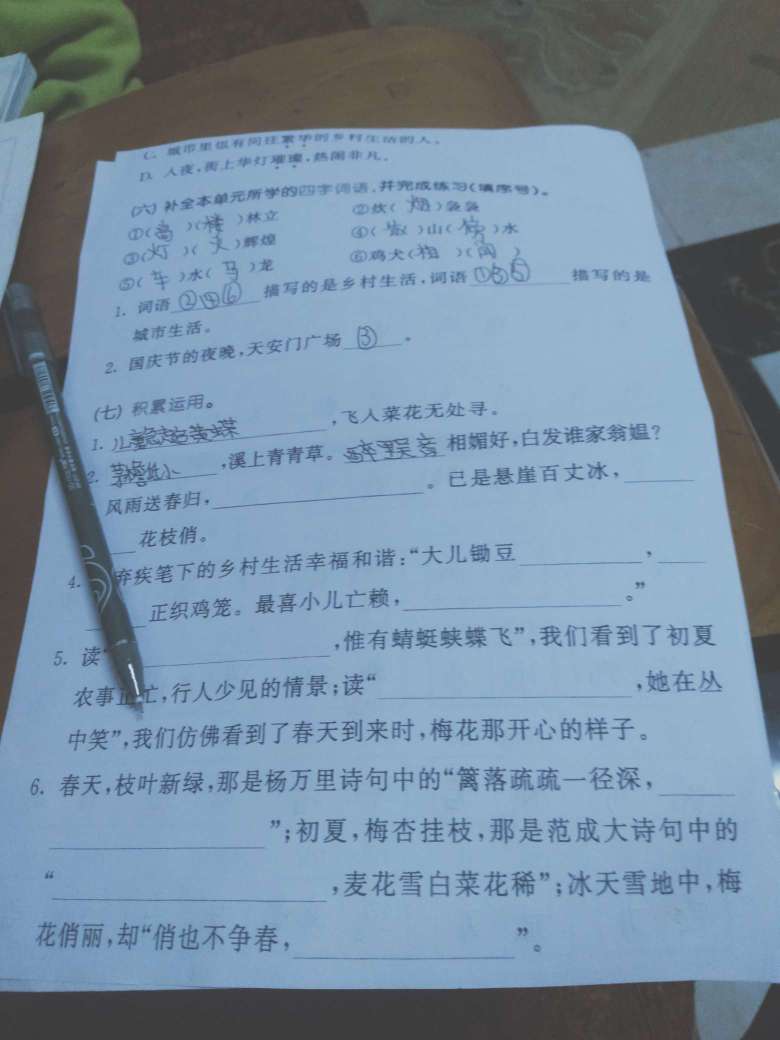 C. 城市里也有向往繁华的乡村生活的人。
D. 入夜,街上华灯璀璨,热闹非凡。
(六) 补全本单元所学的四字词语,并完成练习(填序号)。
①(高)(楼)林立 ②炊(烟)袅袅
③(灯)(火)辉煌 ④( )山( )水
⑤(车)水(马)龙 ⑥鸡犬(相)(闻)
1. 词语②④⑥描写的是乡村生活,词语①③⑤描写的是
城市生活。
2. 国庆节的夜晚,天安门广场③。
(七) 积累运用。
1. 儿童急走追黄蝶,飞入菜花无处寻。
2. 茅檐低小,溪上青青草。醉里吴音相媚好,白发谁家翁媪?
风雨送春归,。已是悬崖百丈冰,
花枝俏。
4. 弃疾笔下的乡村生活幸福和谐:“大儿锄豆,
正织鸡笼。最喜小儿亡赖,。”
5. 读“,惟有蜻蜓蛱蝶飞”,我们看到了初夏
农事正忙,行人少见的情景;读“,她在丛
中笑”,我们仿佛看到了春天到来时,梅花那开心的样子。
6. 春天,枝叶新绿,那是杨万里诗句中的“篱落疏疏一径深,
”;初夏,梅杏挂枝,那是范成大诗句中的
“,麦花雪白菜花稀”;冰天雪地中,梅
花俏丽,却“俏也不争春,”。